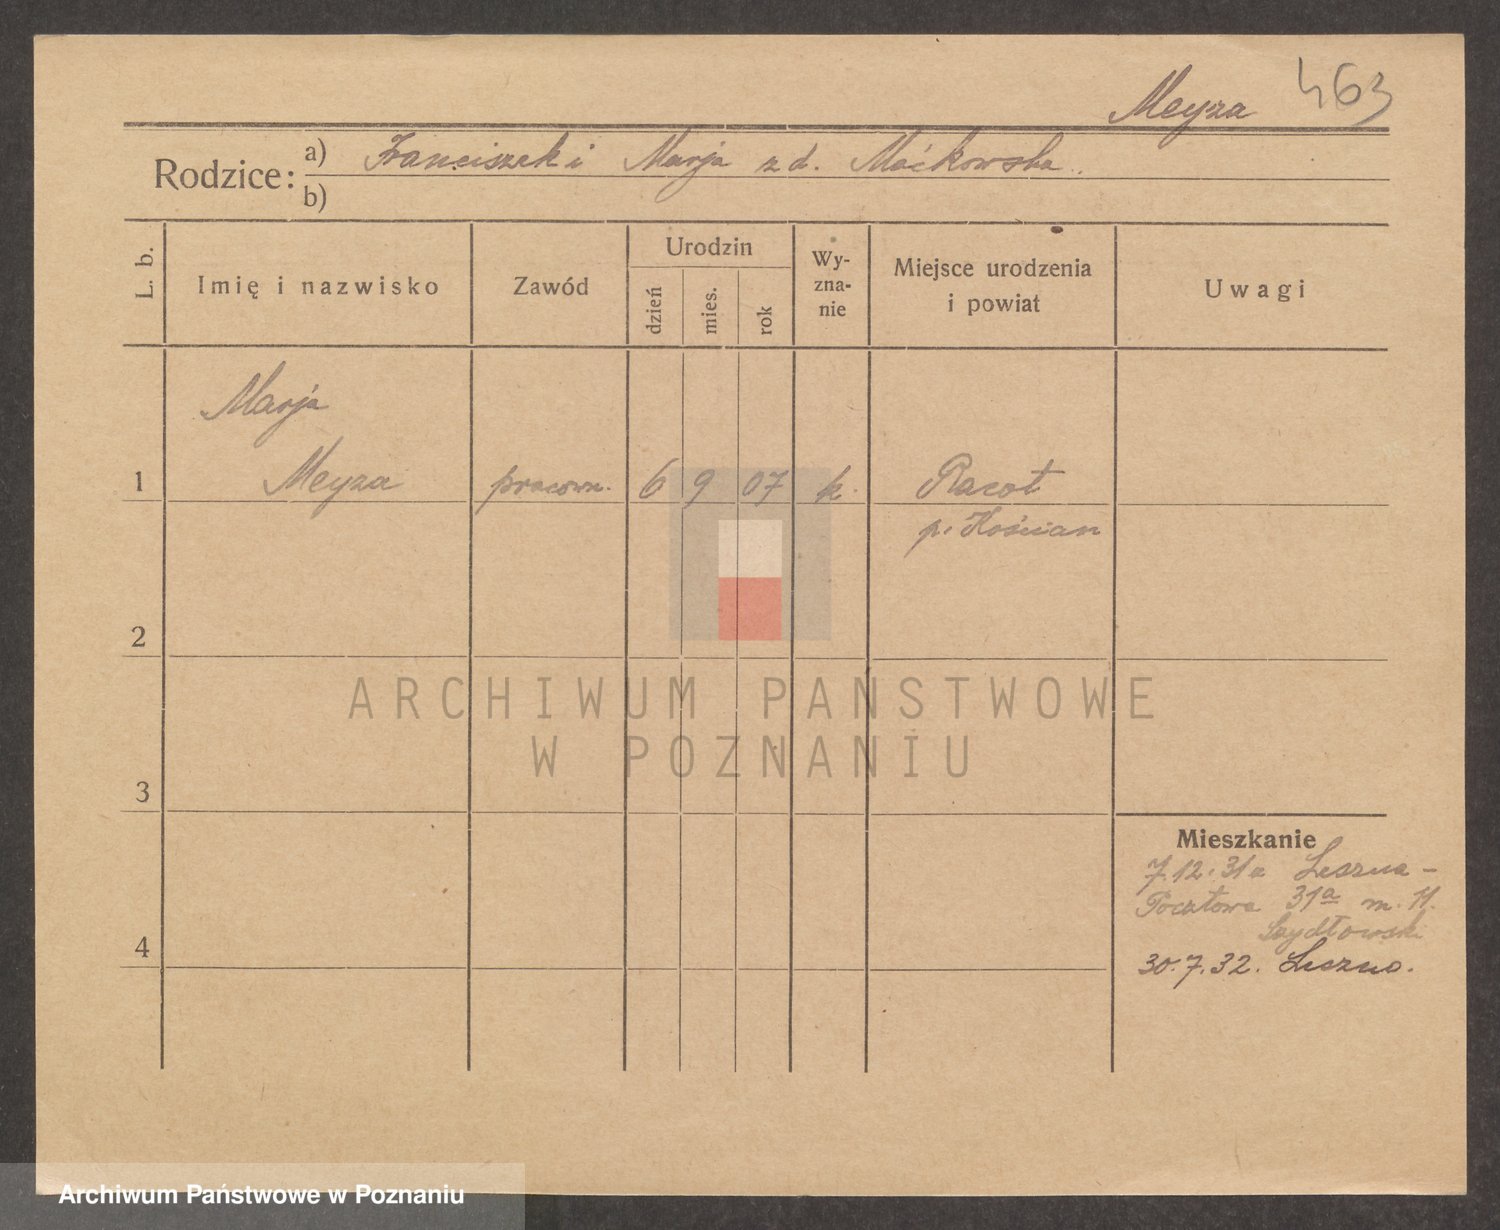 Meyza 463
Rodzice: a) Franciszek i Marja z d. Maćkowska.
b)
L. b.
Imię i nazwisko
Zawód
Urodzin
dzień
mies.
rok
Wy-
zna-
nie
Miejsce urodzenia
i powiat
Uwagi
Marja
1 Meyza pracown. 6 9 07 k. Racot
p. Kościan
2
ARCHIWUM PAŃSTWOWE
W POZNANIU
3
Mieszkanie
7.12.31 z Leszna -
Pocztowa 31a m. 11.
Szydłowski
4
30.7.32. Leszno.
Archiwum Państwowe w Poznaniu